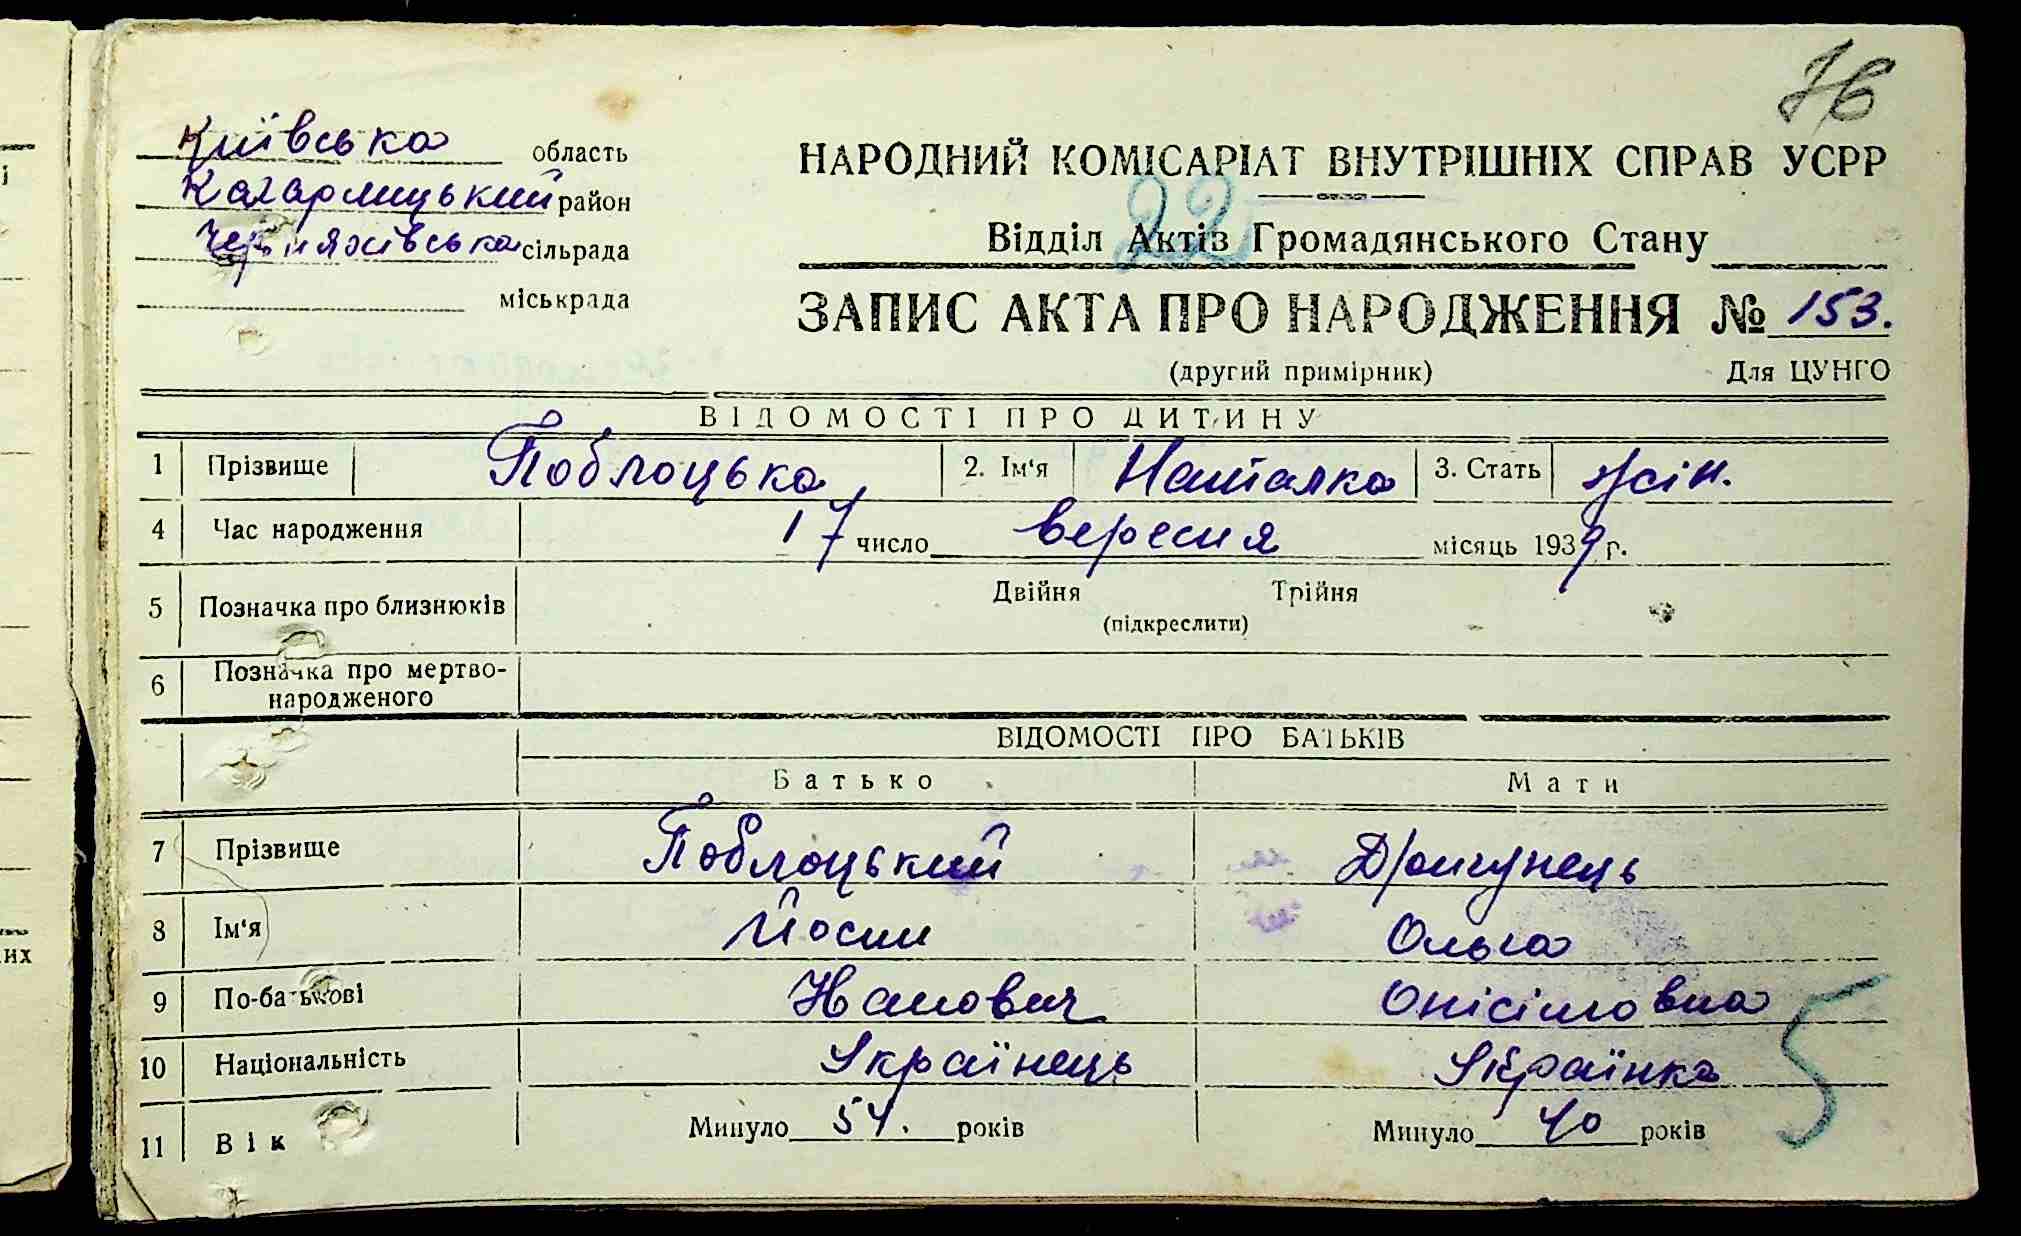 76
Київська область
Кагарлицький район
Черняхівська сільрада
міськрада
НАРОДНИЙ КОМІСАРІАТ ВНУТРІШНІХ СПРАВ УСРР
22
Відділ Актів Громадянського Стану
ЗАПИС АКТА ПРО НАРОДЖЕННЯ № 153.
(другий примірник) Для ЦУНГО
ВІДОМОСТІ ПРО ДИТИНУ
1 Прізвище Поблоцька 2. Ім'я Наталка 3. Стать жін.
4 Час народження 17 число вересня місяць 1939 г.
5 Позначка про близнюків Двійня Трійня
(підкреслити)
6 Позначка про мертво-
народженого
ВІДОМОСТІ ПРО БАТЬКІВ
Батько Мати
7 Прізвище Поблоцький
8 Ім'я Йосип Ольга
9 По-батькові Онісімовна
10 Національність Українець Українка
11 Вік Минуло 54. років Минуло 40 років
5
их